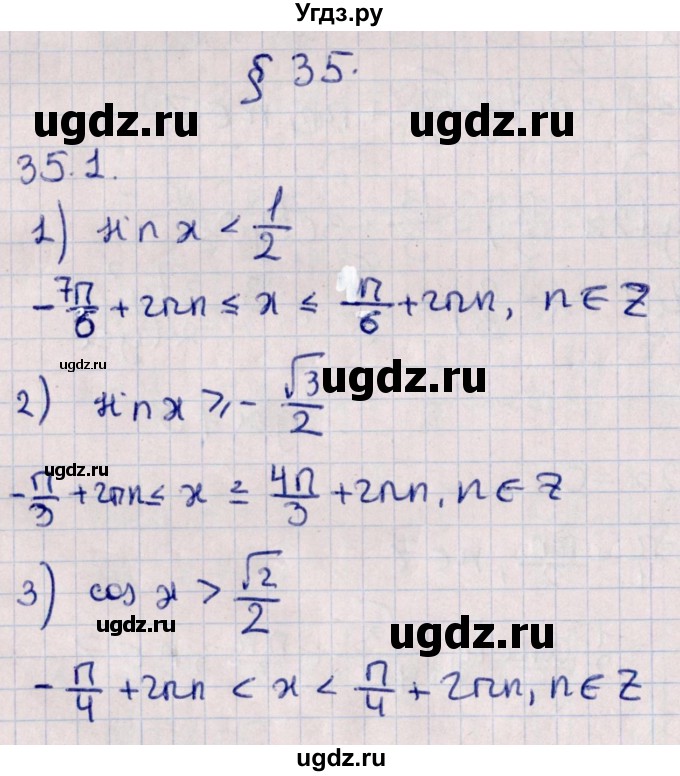 Угдз.ру
§ 35.
ugdz.ru ugdz.ru
35.1.
1) sin x < 1/2
-7π/6 + 2πn ≤ x ≤ π/6 + 2πn, n ∈ Z
ugdz.ru
ugdz.ru
2) sin x ≥ - √3/2
ugdz.ru
-π/3 + 2πn ≤ x ≥ 4π/3 + 2πn, n ∈ Z
3) cos x > √2/2
ugdz.ru
ugdz.ru
-π/4 + 2πn < x < π/4 + 2πn, n ∈ Z
ugdz.ru